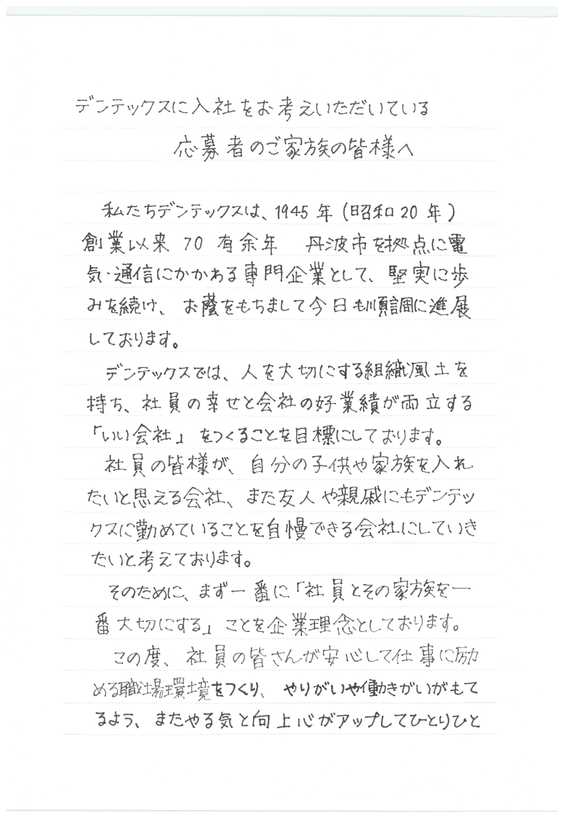 デンテックスに入社をお考えいただいている
応募者のご家族の皆様へ
私たちデンテックスは、1945年(昭和20年)
創業以来70有余年 丹波市を拠点に電
気・通信にかかわる専門企業として、堅実に歩
みを続け、お蔭をもちまして今日も順調に進展
しております。
デンテックスでは、人を大切にする組織風土を
持ち、社員の幸せと会社の好業績が両立する
「いい会社」をつくることを目標にしております。
社員の皆様が、自分の子供や家族を入れ
たいと思える会社、また友人や親戚にもデンテッ
クスに勤めていることを自慢できる会社にしていき
たいと考えております。
そのために、まず一番に「社員とその家族を一
番大切にする」ことを企業理念としております。
この度、社員の皆さんが安心して仕事に励
める職場環境をつくり、やりがいや働きがいがもて
るよう、またやる気と向上心がアップしてひとりひと